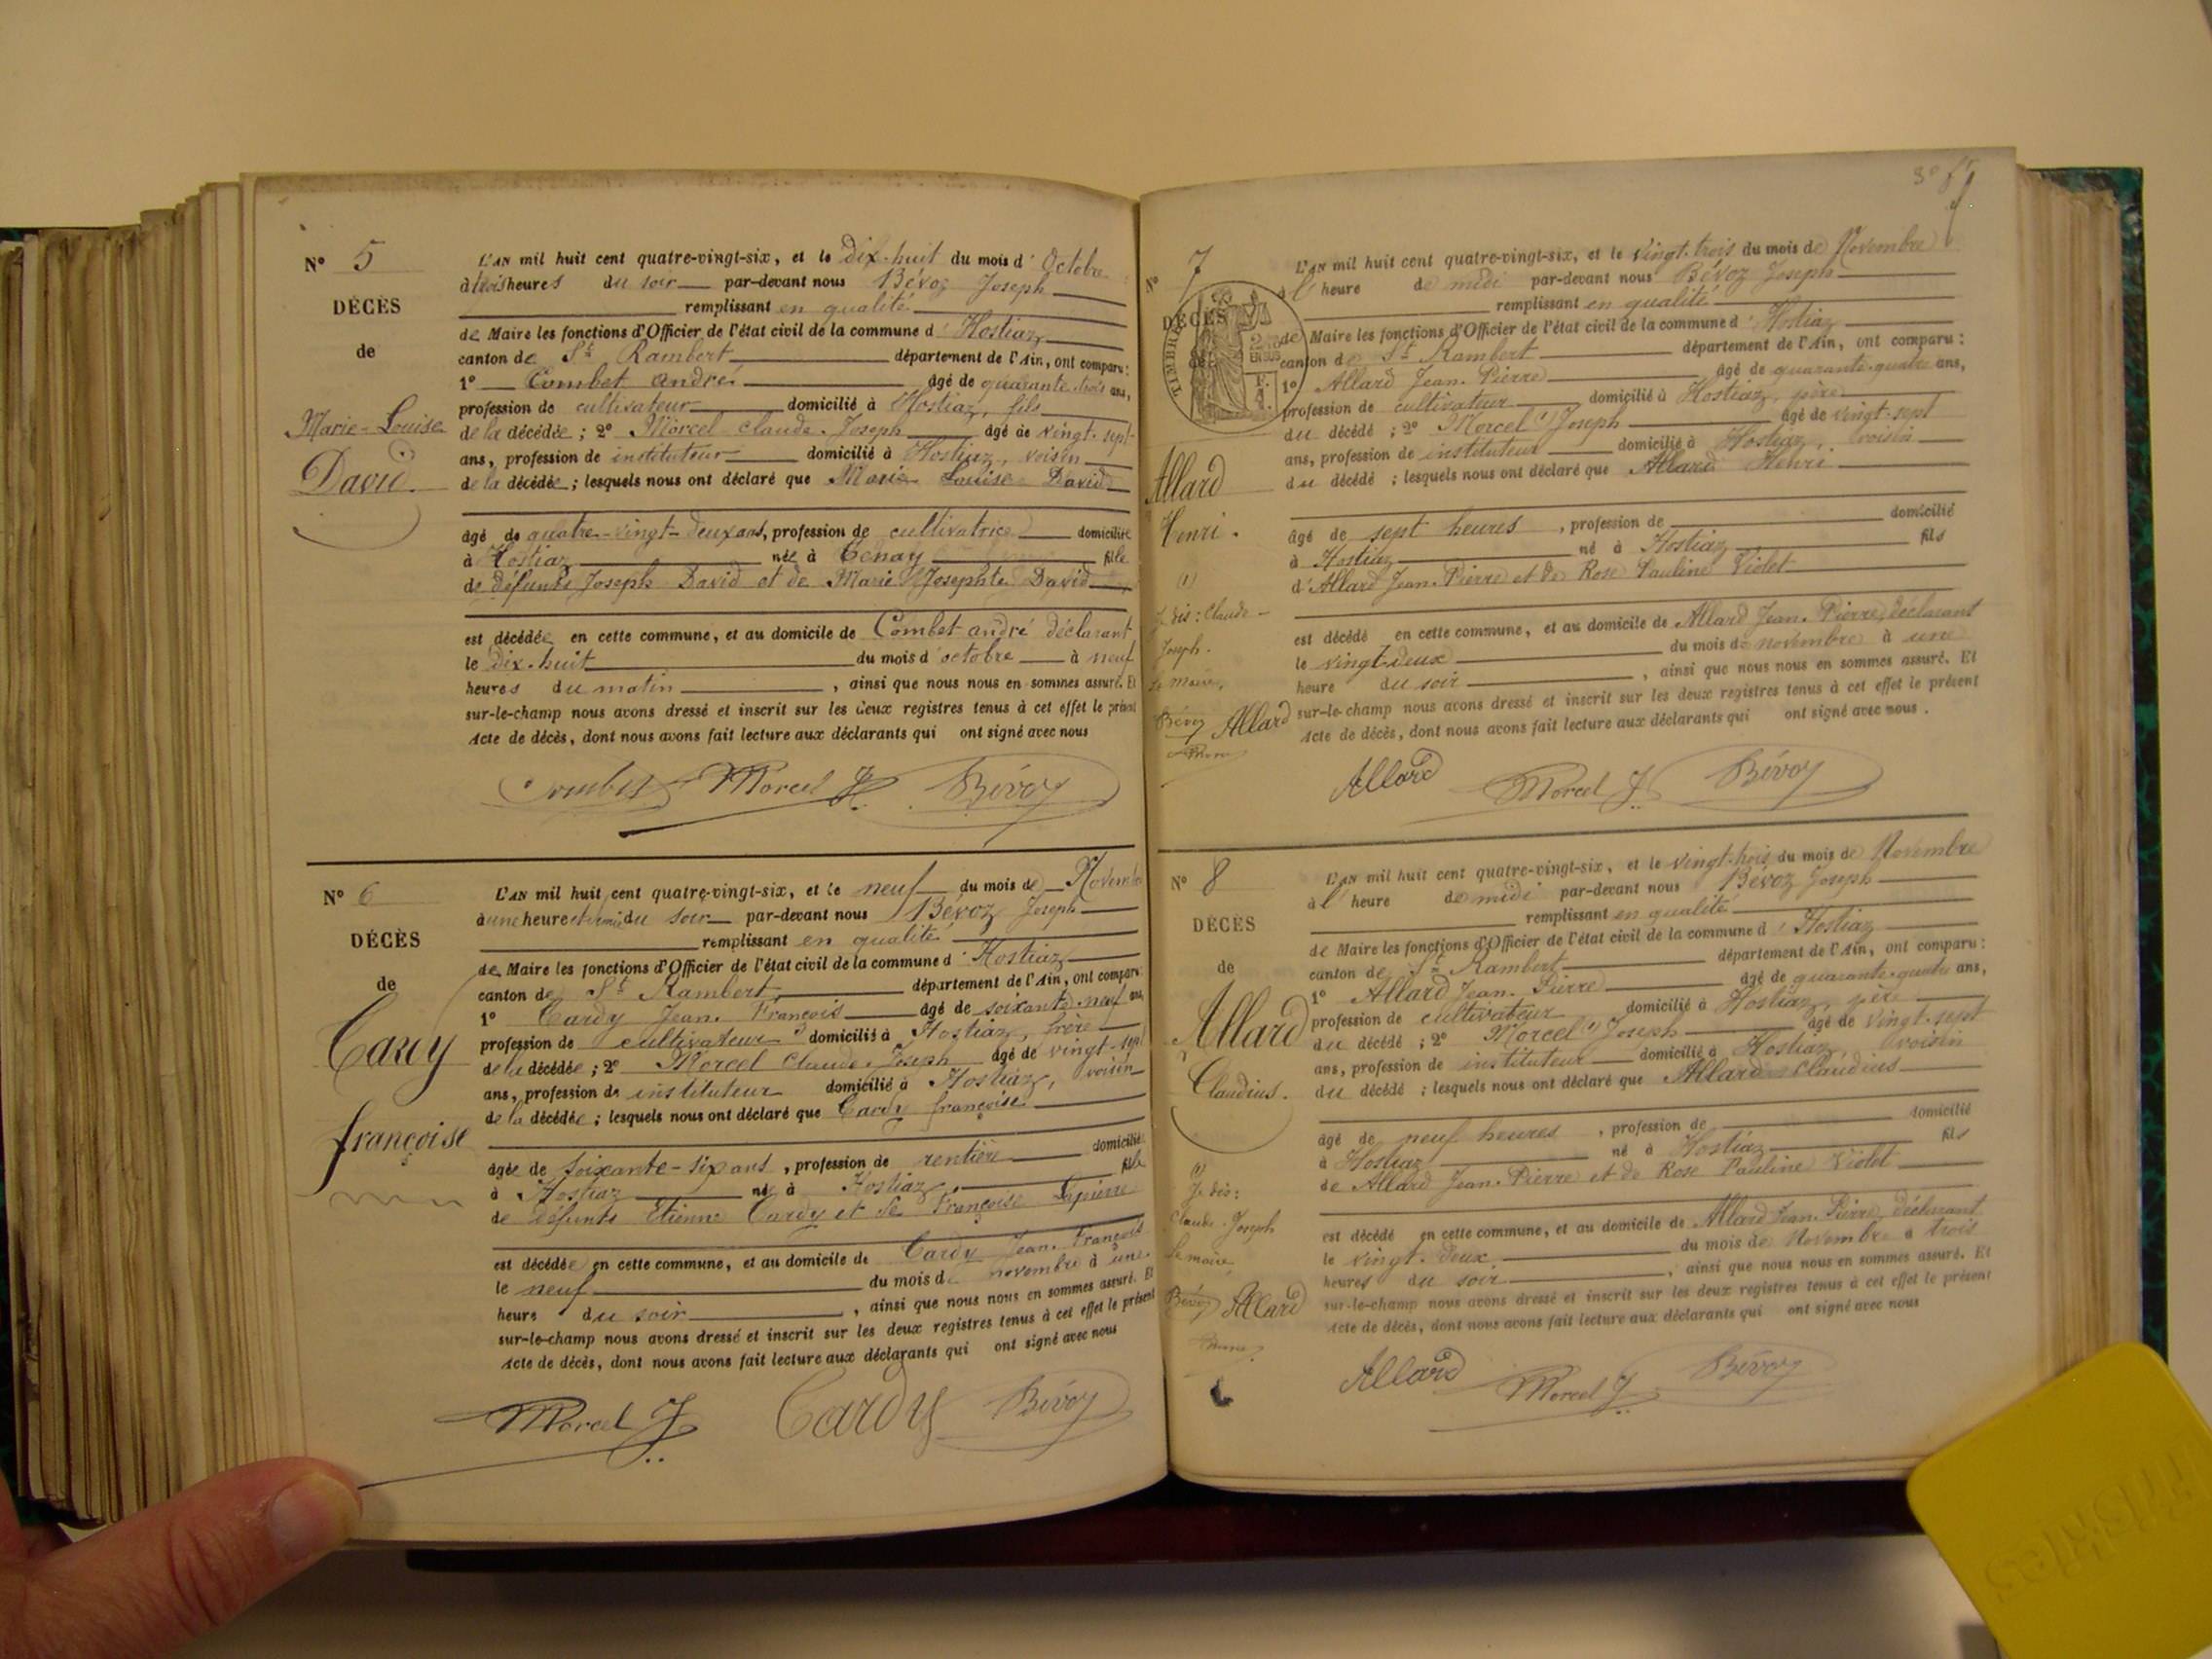 N° 5
DÉCÈS
de
Marie-Louise
David
L'AN mil huit cent quatre-vingt-six, et le dix-huit du mois d'Octobre
à trois heures du soir par-devant nous Bévoz Joseph
remplissant en qualité
de Maire les fonctions d'Officier de l'état civil de la commune d'Hostiaz
canton de St Rambert département de l'Ain, ont comparu :
1° Combet André âgé de quarante-trois ans,
profession de cultivateur domicilié à Hostiaz, fils
de la décédée ; 2° Morcel Claude-Joseph âgé de vingt-sept
ans, profession de instituteur domicilié à Hostiaz, voisin
de la décédée ; lesquels nous ont déclaré que Marie Louise David
âgé de quatre-vingt-deux ans, profession de cultivatrice domiciliée
à Hostiaz née à Tenay fille
de défunts Joseph David et de Marie Josephte David
est décédée en cette commune, et au domicile de Combet André déclarant
le dix-huit du mois d'octobre à neuf
heures du matin, ainsi que nous nous en sommes assuré. Et
sur-le-champ nous avons dressé et inscrit sur les deux registres tenus à cet effet le présent
Acte de décès, dont nous avons fait lecture aux déclarants qui ont signé avec nous
Combet Morcel J Bévoz
N° 6
DÉCÈS
de
Cardy
françoise
L'AN mil huit cent quatre-vingt-six, et le neuf du mois de Novembre
à une heure et demie du soir par-devant nous Bévoz Joseph
remplissant en qualité
de Maire les fonctions d'Officier de l'état civil de la commune d'Hostiaz
canton de St Rambert département de l'Ain, ont comparu
1° Cardy Jean-François âgé de soixante-neuf ans,
profession de cultivateur domicilié à Hostiaz, frère
de la décédée ; 2° Morcel Claude-Joseph âgé de vingt-sept
ans, profession de instituteur domicilié à Hostiaz, voisin
de la décédée ; lesquels nous ont déclaré que Cardy françoise
âgée de soixante-six ans, profession de rentière domiciliée
à Hostiaz née à Hostiaz fille
de défunts Etienne Cardy et de Françoise Lapierre
est décédée en cette commune, et au domicile de Cardy Jean-François
le neuf du mois de novembre à une
heure du soir, ainsi que nous nous en sommes assuré. Et
sur-le-champ nous avons dressé et inscrit sur les deux registres tenus à cet effet le présent
Acte de décès, dont nous avons fait lecture aux déclarants qui ont signé avec nous
Morcel J Cardy Bévoz
N° 7
DÉCÈS
de
TIMBRE
Allard
Henri.
(1)
Je dis : Claude-
Joseph.
Le maire,
Bévoz Allard
L'AN mil huit cent quatre-vingt-six, et le vingt-trois du mois de Novembre
à l'heure de midi par-devant nous Bévoz Joseph
remplissant en qualité
de Maire les fonctions d'Officier de l'état civil de la commune d'Hostiaz
canton de St Rambert département de l'Ain, ont comparu :
1° Allard Jean-Pierre âgé de quarante-quatre ans,
profession de cultivateur domicilié à Hostiaz, père
du décédé ; 2° Morcel (1) Joseph âgé de vingt-sept
ans, profession de instituteur domicilié à Hostiaz, voisin
du décédé ; lesquels nous ont déclaré que Allard Henri
âgé de sept heures, profession de domicilié
à Hostiaz né à Hostiaz fils
d'Allard Jean-Pierre et de Rose Pauline Violet
est décédé en cette commune, et au domicile de Allard Jean-Pierre, déclarant
le vingt-deux du mois de novembre à une
heure du soir, ainsi que nous nous en sommes assuré. Et
sur-le-champ nous avons dressé et inscrit sur les deux registres tenus à cet effet le présent
Acte de décès, dont nous avons fait lecture aux déclarants qui ont signé avec nous.
Allard Morcel J Bévoz
N° 8
DÉCÈS
de
Allard
Claudius.
(1)
Je dis :
Claude-Joseph
Le maire
Bévoz Allard
L'AN mil huit cent quatre-vingt-six, et le vingt-trois du mois de Novembre
à l'heure de midi par-devant nous Bévoz Joseph
remplissant en qualité
de Maire les fonctions d'Officier de l'état civil de la commune d'Hostiaz
canton de St Rambert département de l'Ain, ont comparu :
1° Allard Jean-Pierre âgé de quarante-quatre ans,
profession de cultivateur domicilié à Hostiaz, père
du décédé ; 2° Morcel (1) Joseph âgé de vingt-sept
ans, profession de instituteur domicilié à Hostiaz voisin
du décédé ; lesquels nous ont déclaré que Allard Claudius
âgé de neuf heures, profession de domicilié
à Hostiaz né à Hostiaz fils
de Allard Jean-Pierre et de Rose Pauline Violet
est décédé en cette commune, et au domicile de Allard Jean-Pierre, déclarant
le vingt-deux du mois de Novembre à trois
heures du soir, ainsi que nous nous en sommes assuré. Et
sur-le-champ nous avons dressé et inscrit sur les deux registres tenus à cet effet le présent
Acte de décès, dont nous avons fait lecture aux déclarants qui ont signé avec nous
Allard Morcel J Bévoz